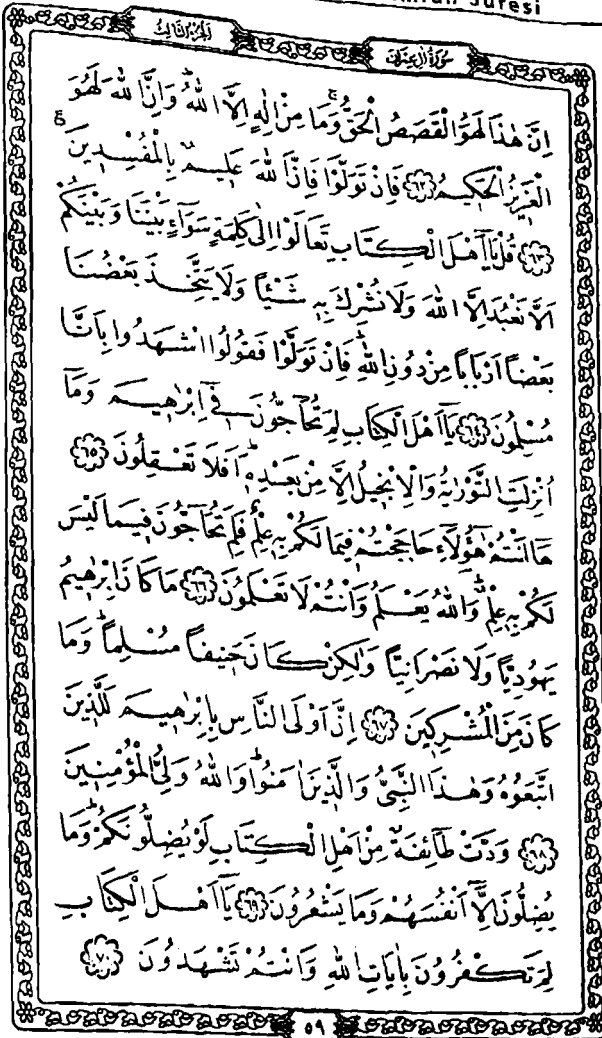 Suresi
سُورَةُ اٰلِ عِمْرٰنَ
اَلْجُزْءُ الثَّالِثُ
اِنَّ هٰذَا لَهُوَ الْقَصَصُ الْحَقُّۚ وَمَا مِنْ اِلٰهٍ اِلَّا اللّٰهُۜ وَاِنَّ اللّٰهَ لَهُوَ
الْعَزٖيزُ الْحَكٖيمُ ﴿٦٢﴾ فَاِنْ تَوَلَّوْا فَاِنَّ اللّٰهَ عَلٖيمٌ بِالْمُفْسِدٖينَ ع
﴿٦٣﴾ قُلْ يَٓا اَهْلَ الْكِتَابِ تَعَالَوْا اِلٰى كَلِمَةٍ سَوَٓاءٍ بَيْنَنَا وَبَيْنَكُمْ
اَلَّا نَعْبُدَ اِلَّا اللّٰهَ وَلَا نُشْرِكَ بِهٖ شَيْـًٔا وَلَا يَتَّخِذَ بَعْضُنَا
بَعْضًا اَرْبَابًا مِنْ دُونِ اللّٰهِۜ فَاِنْ تَوَلَّوْا فَقُولُوا اشْهَدُوا بِاَنَّا
مُسْلِمُونَ ﴿٦٤﴾ يَٓا اَهْلَ الْكِتَابِ لِمَ تُحَٓاجُّونَ فٖٓي اِبْرٰهٖيمَ وَمَٓا
اُنْزِلَتِ التَّوْرٰيةُ وَالْاِنْجٖيلُ اِلَّا مِنْ بَعْدِهٖۜ اَفَلَا تَعْقِلُونَ ﴿٦٥﴾
هَٓا اَنْتُمْ هٰٓؤُ۬لَٓاءِ حَاجَجْتُمْ فٖيمَا لَكُمْ بِهٖ عِلْمٌ فَلِمَ تُحَٓاجُّونَ فٖيمَا لَيْسَ
لَكُمْ بِهٖ عِلْمٌۜ وَاللّٰهُ يَعْلَمُ وَاَنْتُمْ لَا تَعْلَمُونَ ﴿٦٦﴾ مَا كَانَ اِبْرٰهٖيمُ
يَهُودِيًّا وَلَا نَصْرَانِيًّا وَلٰكِنْ كَانَ حَنٖيفًا مُسْلِمًاۜ وَمَا
كَانَ مِنَ الْمُشْرِكٖينَ ﴿٦٧﴾ اِنَّ اَوْلَى النَّاسِ بِاِبْرٰهٖيمَ لَلَّذٖينَ
اتَّبَعُوهُ وَهٰذَا النَّبِيُّ وَالَّذٖينَ اٰمَنُواۜ وَاللّٰهُ وَلِيُّ الْمُؤْمِنٖينَ
﴿٦٨﴾ وَدَّتْ طَٓائِفَةٌ مِنْ اَهْلِ الْكِتَابِ لَوْ يُضِلُّونَكُمْۜ وَمَا
يُضِلُّونَ اِلَّٓا اَنْفُسَهُمْ وَمَا يَشْعُرُونَ ﴿٦٩﴾ يَٓا اَهْلَ الْكِتَابِ
لِمَ تَكْفُرُونَ بِاٰيَاتِ اللّٰهِ وَاَنْتُمْ تَشْهَدُونَ ﴿٧٠﴾
٥٩